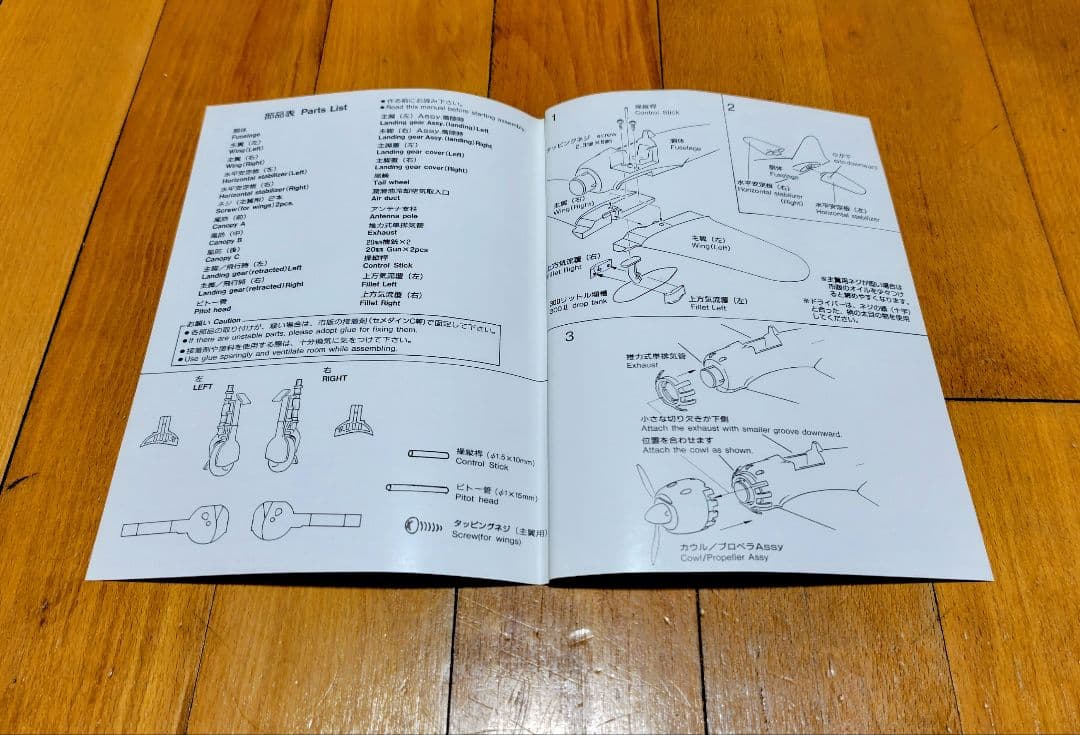 部品表 Parts List
胴体
Fuselage
主翼（左）
Wing(Left)
主翼（右）
Wing(Right)
水平安定板（左）
Horizontal stabilizer(Left)
水平安定板（右）
Horizontal stabilizer(Right)
ネジ（主翼用）2本
Screw(for wings)2pcs.
風防（前）
Canopy A
風防（中）
Canopy B
風防（後）
Canopy C
主脚／飛行時（左）
Landing gear(retracted)Left
主脚／飛行時（右）
Landing gear(retracted)Right
ピトー管
Pitot head
●作る前にお読み下さい。
●Read this manual before starting assembly.
主脚（左）Assy.着陸時
Landing gear Assy.(landing)Left
主脚（右）Assy.着陸時
Landing gear Assy.(landing)Right
主脚蓋（左）
Landing gear cover(Left)
主脚蓋（右）
Landing gear cover(Right)
尾輪
Tail wheel
潤滑油冷却空気取入口
Air duct
アンテナ支柱
Antenna pole
推力式単排気管
Exhaust
20㎜機銃×2
20㎜ Gun×2pcs
操縦桿
Control Stick
上方気流覆（左）
Fillet Left
上方気流覆（右）
Fillet Right
お願い Caution
●各部品の取り付けが、緩い場合は、市販の接着剤（セメダインC等）で固定して下さい。
●If there are unstable parts, please adopt glue for fixing them.
●接着剤や塗料を使用する際は、十分換気に気をつけて下さい。
●Use glue sparingly and ventilate room while assembling.
左
LEFT
右
RIGHT
操縦桿（φ1.5×10mm）
Control Stick
ピトー管（φ1×15mm）
Pitot head
タッピングネジ（主翼用）
Screw(for wings)
1
操縦桿
Control Stick
タッピングネジ screw
2.3φ×8㎜
胴体
Fuselage
主翼（右）
Wing(Right)
主翼（左）
Wing(Left)
上方気流覆（右）
Fillet Right
300リットル増槽
300ℓ drop tank
上方気流覆（左）
Fillet Left
※主翼用ネジが堅い場合は
市販のオイルを少々つけ
ると締めやすくなります。
※ドライバーは、ネジの頭（十字）
と合った、柄の太目の物を使用
してください。
2
胴体
Fuselage
水平安定板（右）
Horizontal stabilizer
(Right)
水平安定板（左）
Horizontal stabilizer
3
推力式単排気管
Exhaust
小さな切り欠きが下側
Attach the exhaust with smaller groove downward.
位置を合わせます
Attach the cowl as shown.
カウル／プロペラAssy
Cowl/Propeller Assy